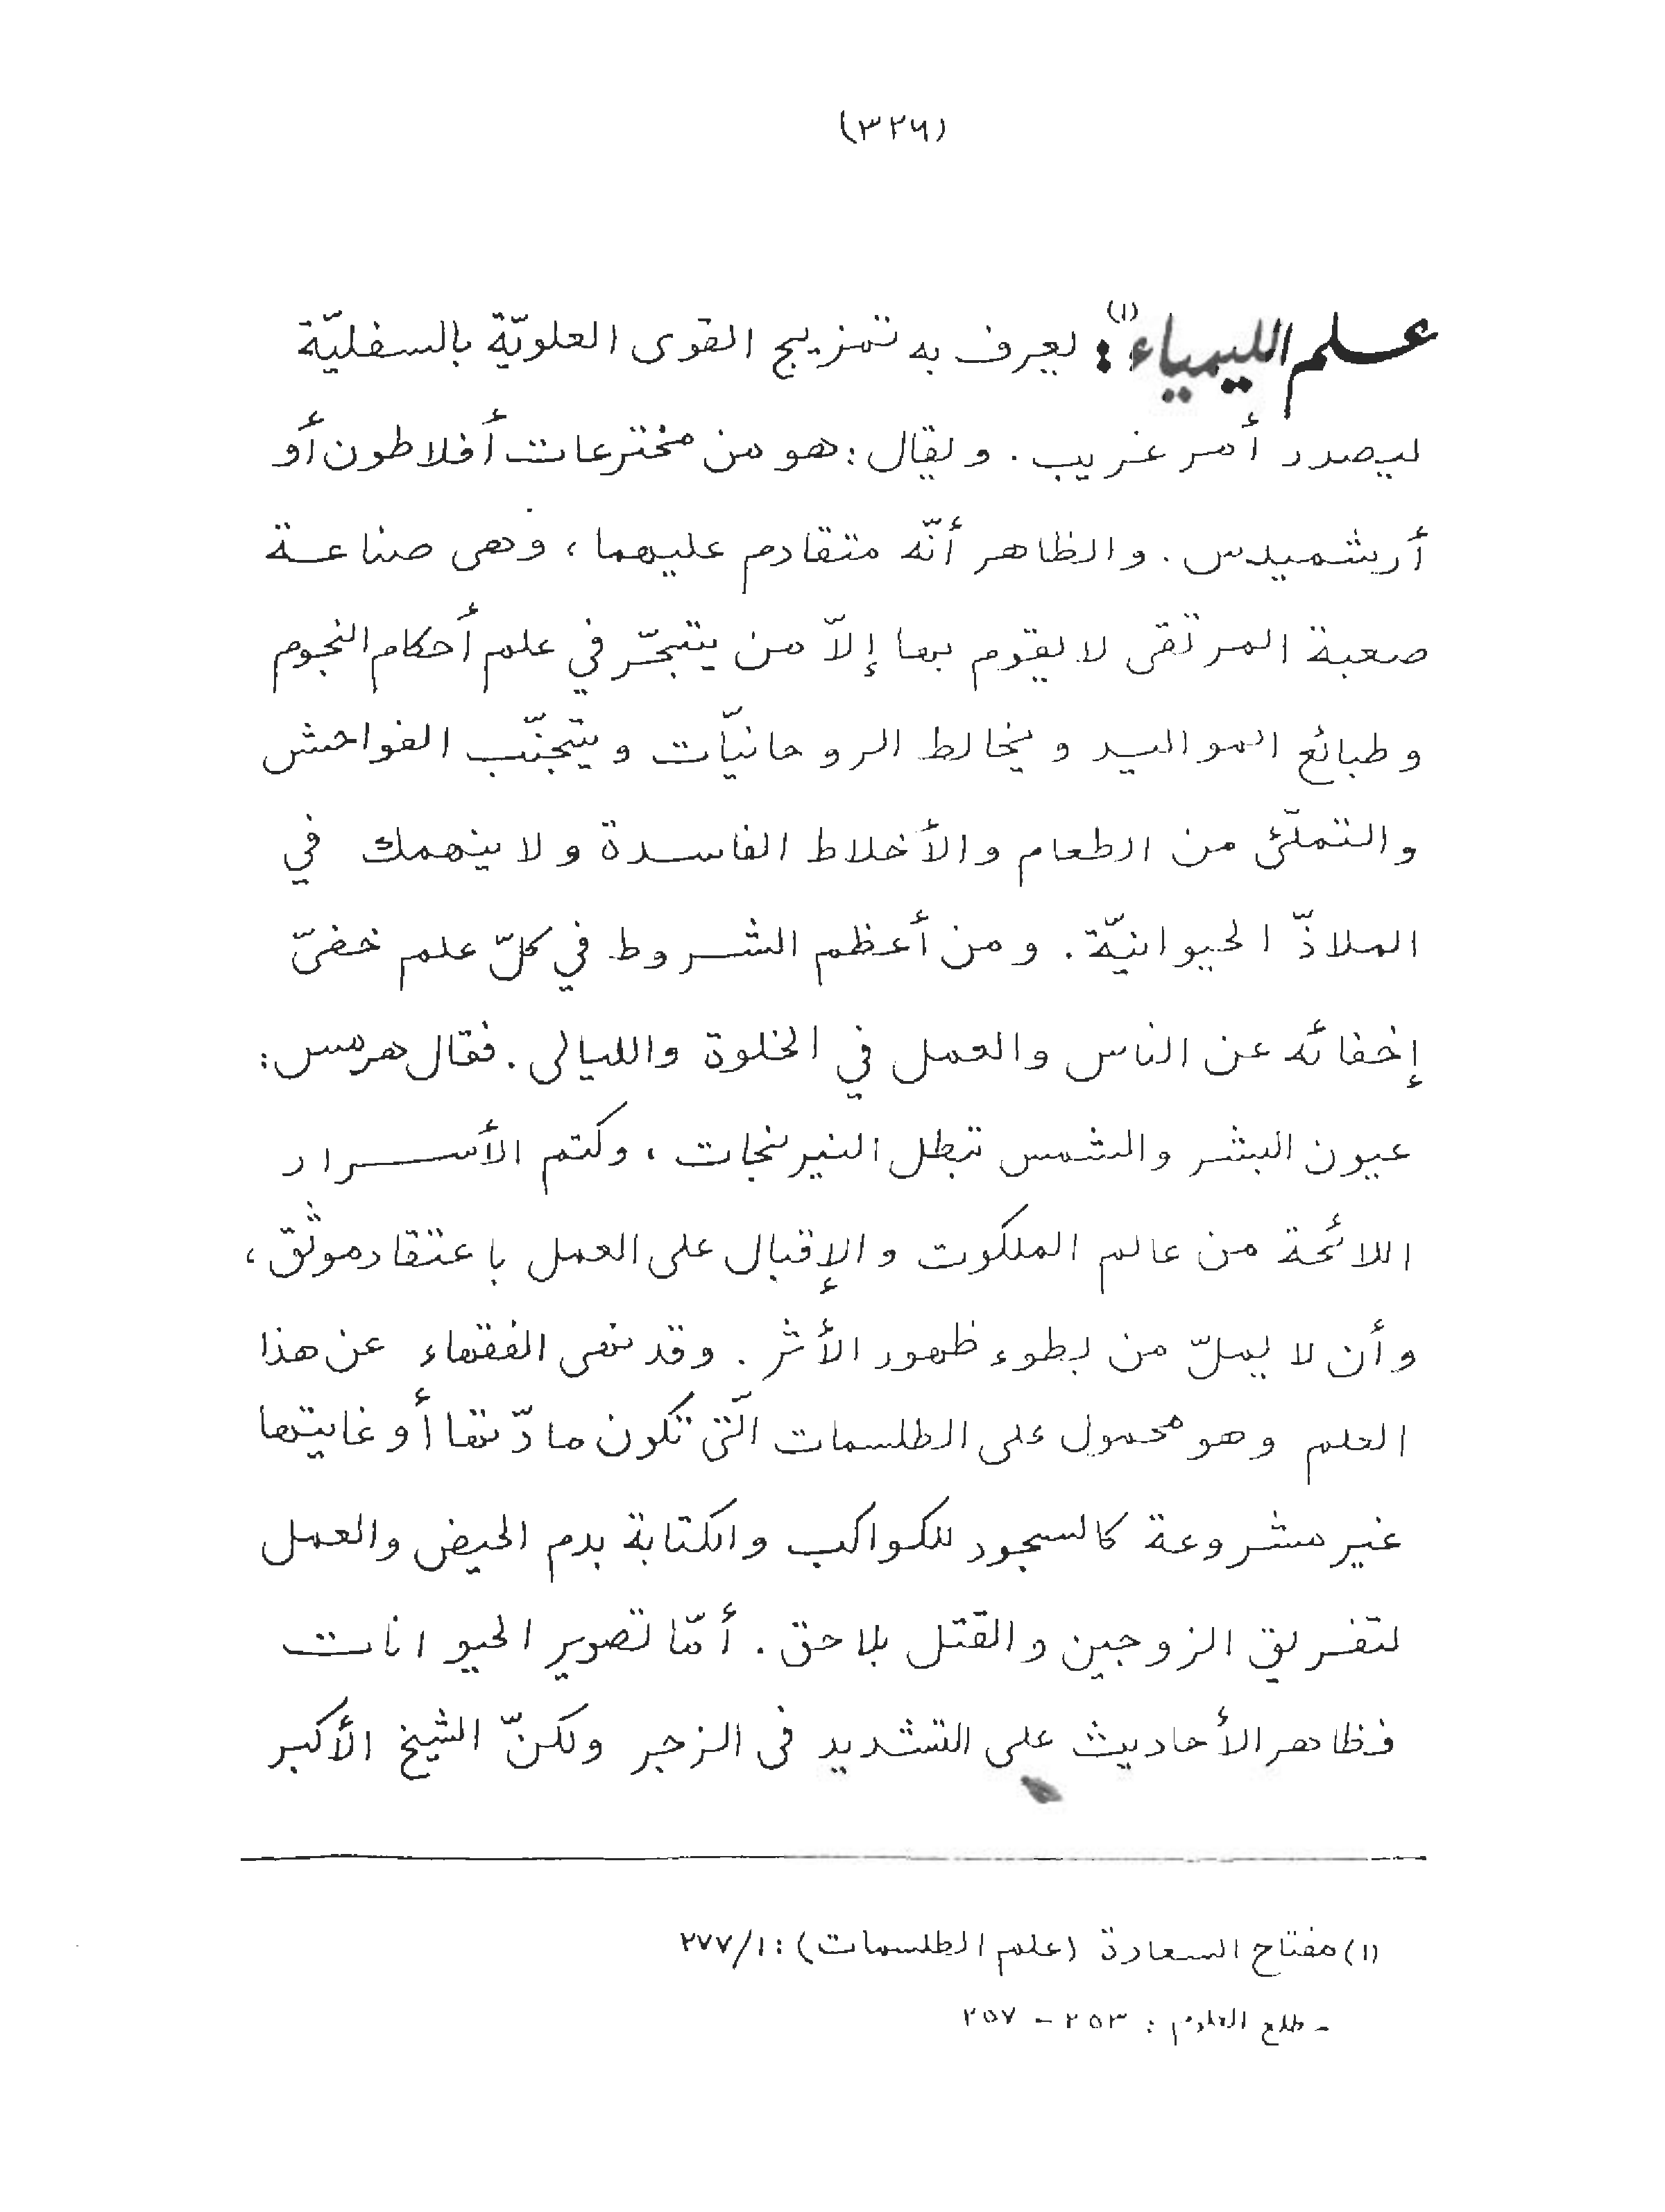 (٣٢٦)
علم الليمياء(١): يعرف به تمزيج القوى العلويّة بالسفليّة
ليصدر أمر غريب. ويقال: هو من مخترعات أفلاطون أو
أرشميدس. والظاهر أنّه متقادم عليهما، وهى صناعة
صعبة المرتقى لا يقوم بها إلاّ من يتبحّر في علم أحكام النجوم
وطبائع المواليد ويخالط الروحانيّات ويتجنّب الفواحش
والتملّئ من الطعام والأخلاط الفاسدة ولا ينهمك في
الملاذّ الحيوانيّة. ومن أعظم الشروط في كلّ علم خفىّ
إخفائه عن الناس والعمل في الخلوة والليالى. فقال هرمس:
عيون البشر والشمس تبطل النيرنجات، وكتم الأسرار
اللائحة من عالم الملكوت والإقبال على العمل باعتقاد موثق،
وأن لا يملّ من بطوء ظهور الأثر. وقد نهى الفقهاء عن هذا
العلم وهو محمول على الطلسمات الّتى تكون مادّتها أو غايتها
غير مشروعة كالسجود للكواكب والكتابة بدم الحيض والعمل
لتفريق الزوجين والقتل بلا حق. أمّا تصوير الحيوانات
فظاهر الأحاديث على التشديد فى الزجر ولكنّ الشيخ الأكبر
(١) مفتاح السعادة (علم الطلسمات): ٢٧٧/١
- طلع العلوم: ٢٥٣ - ٢٥٧